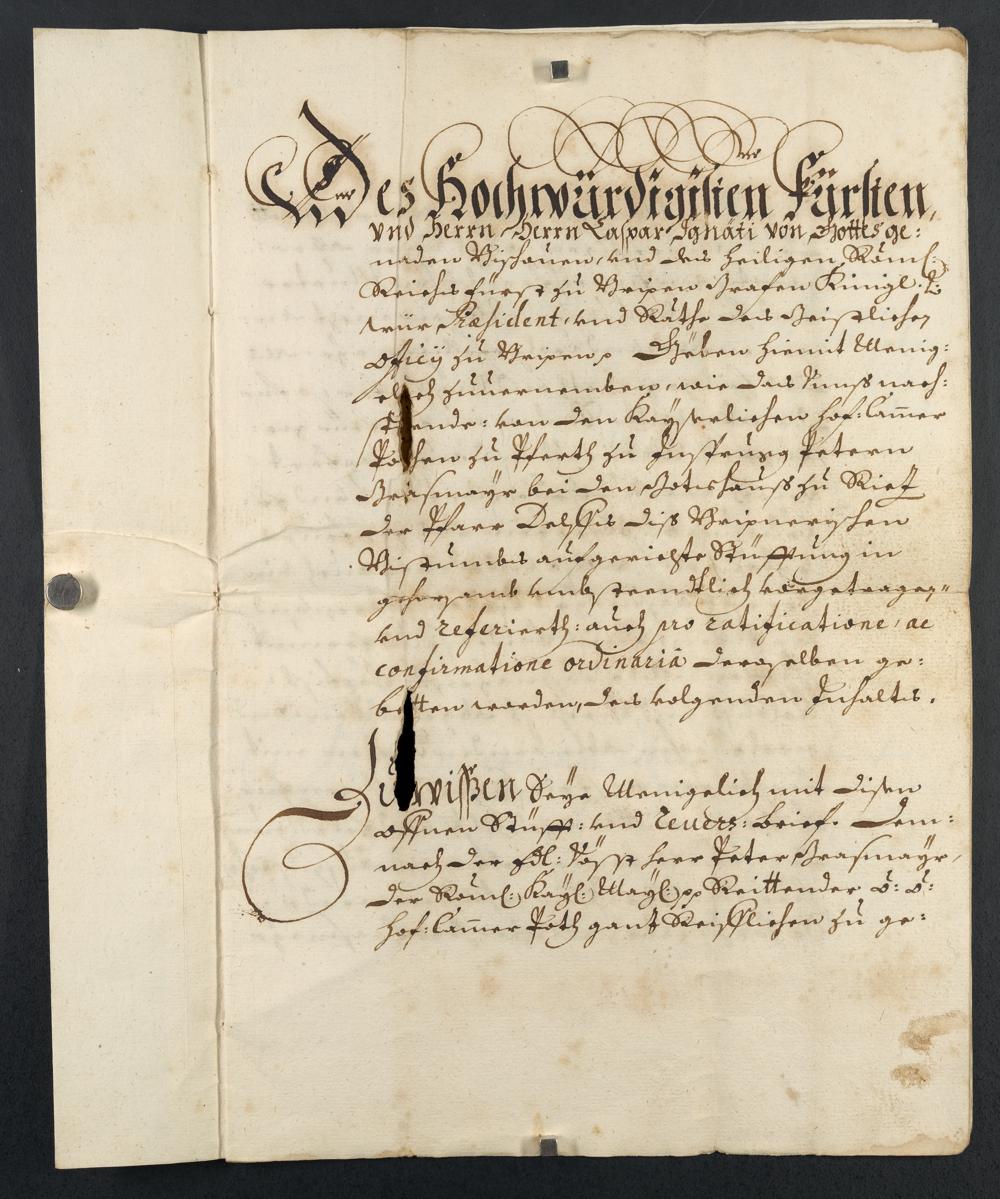 Des Hochwürdigisten Fürsten,
vnd Herrn Herrn Caspar Ignati von Gottes ge:
naden Bischouen, vnd des Heiligen Röm(:
Reichs Fürst zu Brixen Grafen Künigl. &:
wür Præsident, vnd Räthe des Geistlichen
Officÿ zu Brixen, Geben hiemit Menig:
elich zuuernemben, wie das Vnnß nach:
stehende: von den Kayserlichen Hof: Camer
Pothen zu Pferth zu Insprugg Petern
Grasmayr bei den Gotshauß zu Riez
der Pfarr Delffs diß Brixnerischen
Bistumbs aufgerichte Stüfftung in
gehorsamb vmbstendtlich vorgetragen
vnd referierth: auch pro ratificatione, ac
confirmatione ordinariâ deroselben ge:
betten worden, des volgenden Inhalts.
Zuwissen Seye Menigelich mit disen
offnen Stüfft: vnd Reuers: brief. Dem:
nach der Edl: Vösst herr Peter Grasmayr,
der Röm(: Kay(: May(: Reittender Ö: Ö:
hof: Camer Poth ganz Reifflichen zu ge: